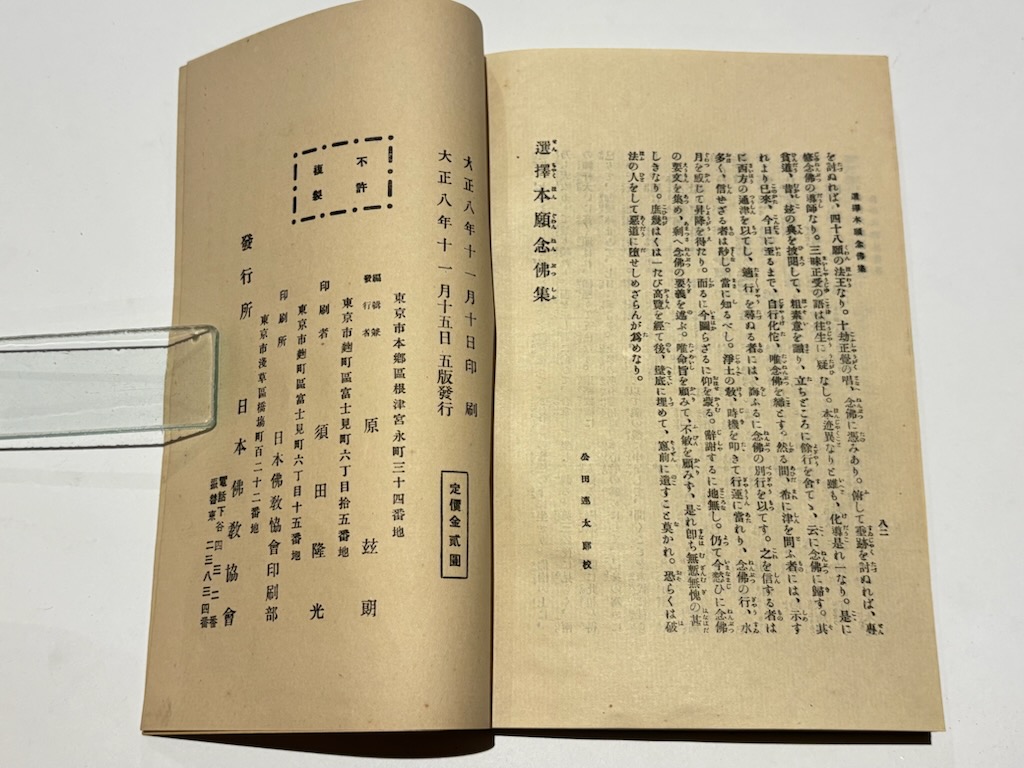 選擇本願念佛集
八二
を討ぬれば、四十八願の法王なり。十劫正覺の唱、念佛に憑みあり。俯して垂跡を訪ぬれば、專
修念佛の導師なり。三昧正受の語は往生に疑なし。本迹異なりと雖も、化導是れ一なり。是に
貧道、昔、玆の典を披閲して、粗素意を識り、立ちどころに餘行を舍て、云に念佛に歸す。其
れより已來、今日に至るまで、自行化佗、唯念佛を縡とす。然る間、希に津を問ふ者には、示す
に西方の通津を以てし、適行を尋ぬる者には、誨ふるに念佛の別行を以てす。之を信ずる者は
多く、信ぜざる者は尠し。當に知るべし。淨土の敎、時機を叩きて行運に當れり、念佛の行、水
月を感じて昇降を得たり。面るに今圖らざるに仰を蒙る。辭謝するに地無し。仍て今憖ひに念佛
の要文を集め、剩へ念佛の要義を述ぶ。唯命旨を顧みて、不敏を顧みず、是れ卽ち無慙無愧の甚
しきなり。庶幾はくは一たび高覽を經て後、壁底に埋めて、窓前に遺すこと莫かれ。恐らくは破
法の人をして惡道に墮せしめざらんが爲めなり。
公田連太郞校
選擇本願念佛集
せんちやくほんぐわんねんぶつしふ
大正八年十一月十日印刷
大正八年十一月十五日五版發行
定價金貳圓
不許
複製
東京市本鄕區根津宮永町三十四番地
編輯兼
發行者
原玆朗
東京市麴町區富士見町六丁目拾五番地
印刷者
須田隆光
東京市麴町區富士見町六丁目十五番地
印刷所
日本佛敎協會印刷部
東京市淺草區橋場町百二十二番地
發行所
日本佛敎協會
電話下谷四三一二番
振替東二三八三四番